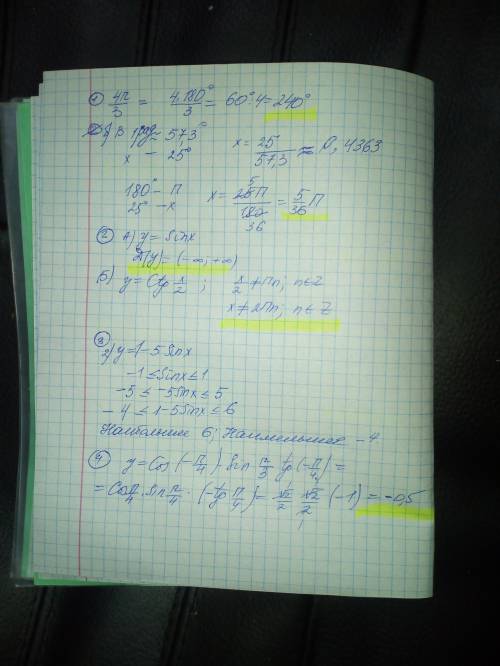 ① 4π/3 = 4·180°/3 = 60°·4 = 240°
1 рад ≈ 57,3°
x – 25°
x = 25/57,3 ≈ 0,4363
180° – π
25° – x
x = 25π/180 = 5/36 π
5
36
② А) y = sin x
Д(y) = (-∞; +∞)
Б) y = ctg x/2 ; x/2 ≠ πn; n∈Z
x ≠ 2πn; n∈Z
③
2) y = 1-5 sin x
-1 ≤ sin x ≤ 1
-5 ≤ -5 sin x ≤ 5
-4 ≤ 1-5 sin x ≤ 6
Наибольшее 6; Наименьшее -4
④ y = Cos (-π/4) · sin π/3 tg (-π/4) =
= Cos π/4 · sin π/4 · (-tg π/4) = √2/2 · √2/2 (-1) = -0,5